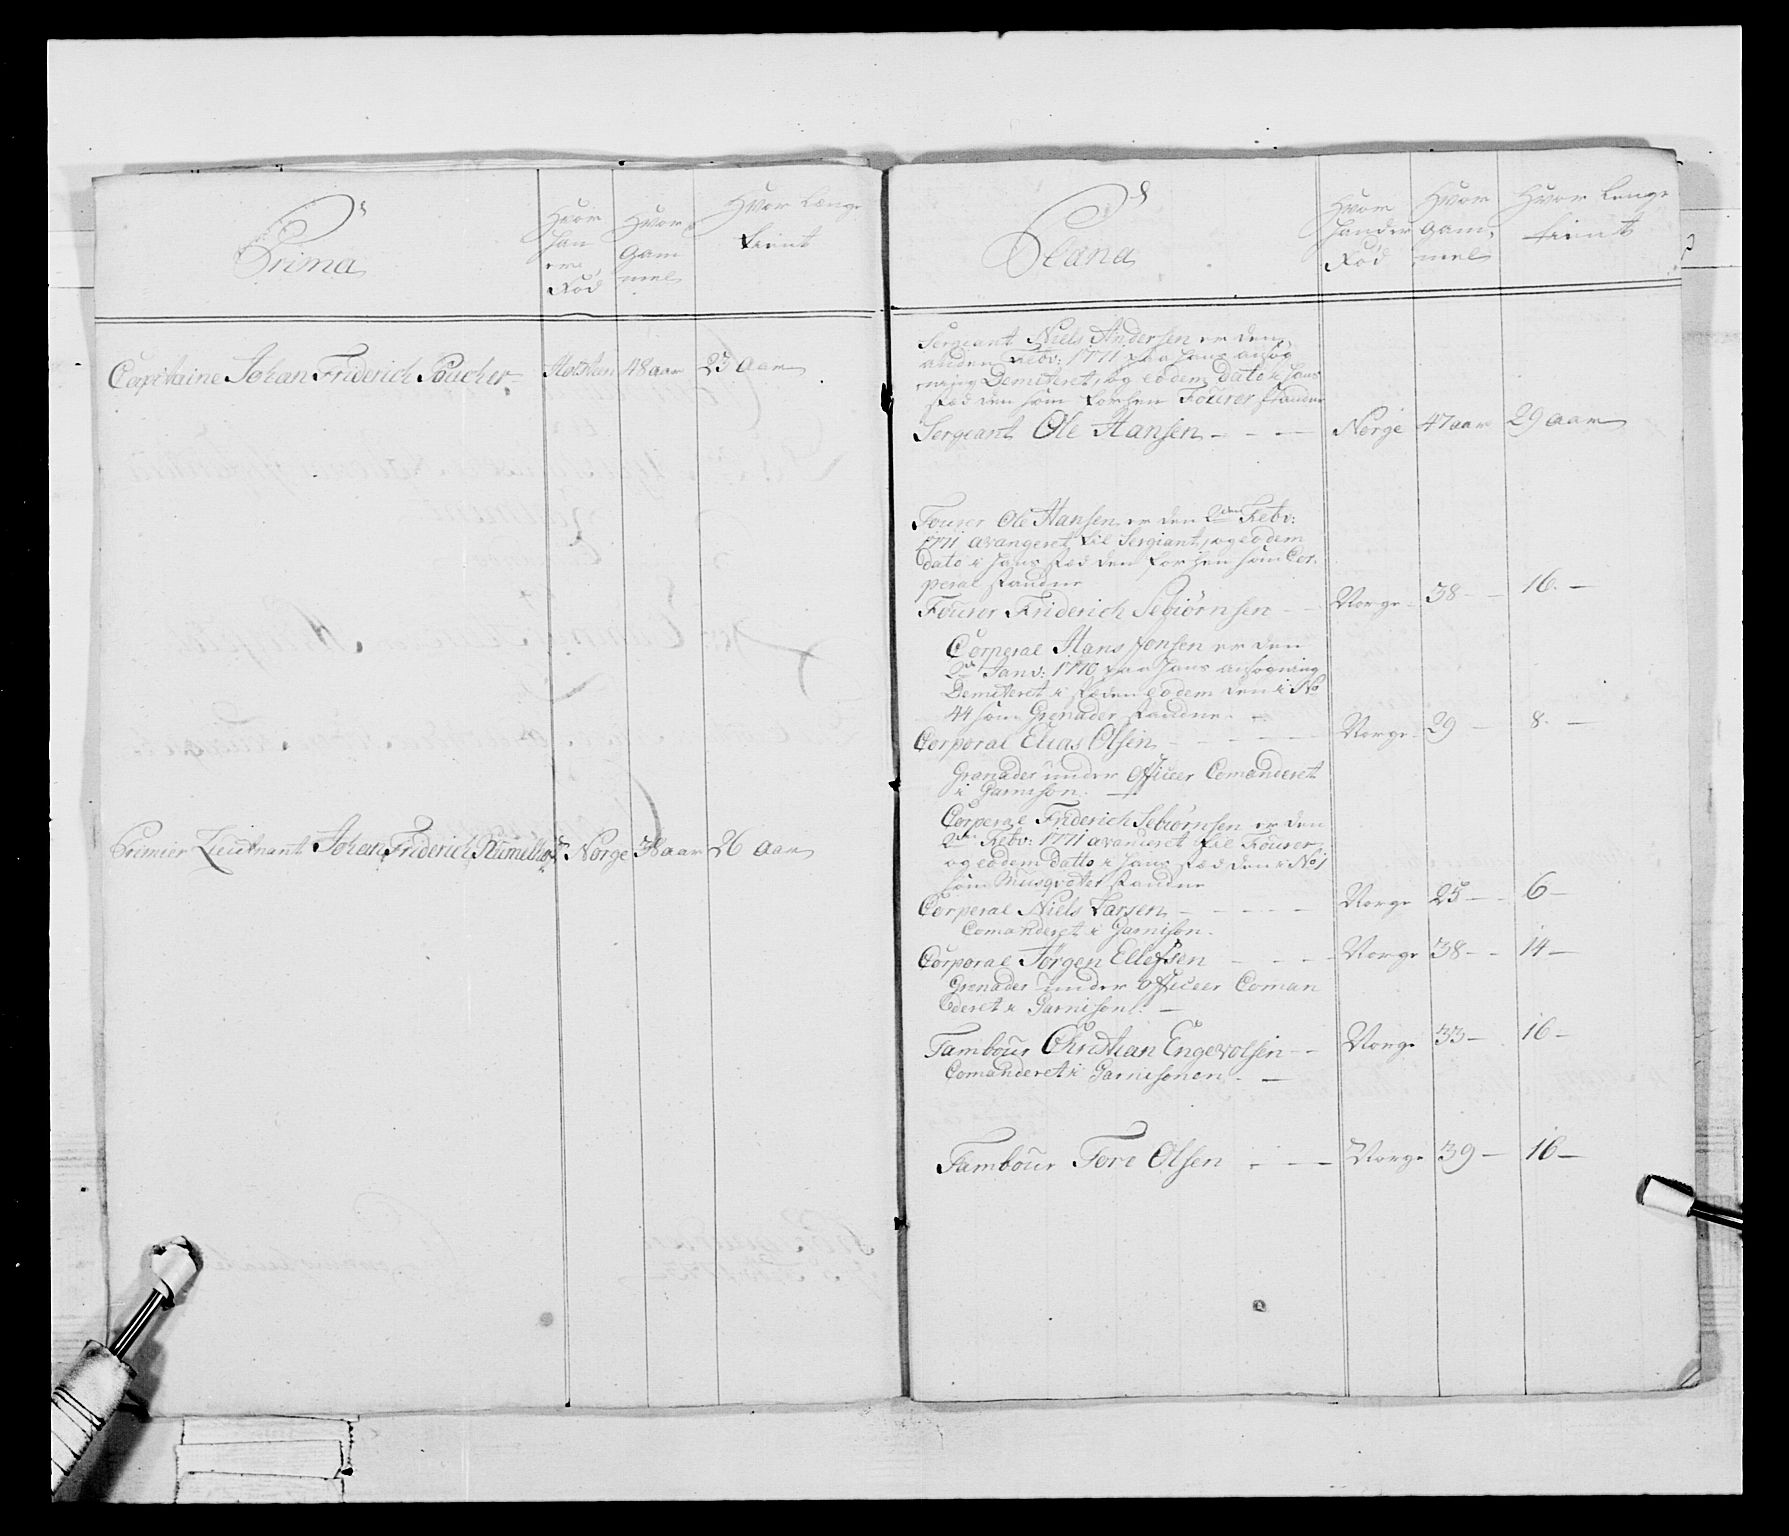 Prima
Hvor
han
er
Fød
Hvor
gam
mel
Hvor Længe
tient
Capitaine Johan Friderich Poucher Holsten 48 aar 23 aar
Premier Lieutnant Johan Friderich Norge 38 aar 26 aar
Plana
Hvor
hand er
Fød
Hvor
gam,
mel
Hvor lenge
tient
Sergeant Niels Andersen er den
anden Febv: 1771 paa hans ansøg
ning Demiteret, og eodem Dato i hans
stæd den som forhen Fourer standen
Sergeant Ole Hansen - - - Norge 47 aar 29 aar
Fourer Ole Hansen er den 2den Febv:
1771 avangeret til Sergiant, og eodem
dato i hans stæd den forhen som Cor,
peral standne
Fourer Friderich Sebiørnsen - - Norge 38 - - 16. -
Corperal Hans Jonsen er den
2de Janv: 1770 paa hans ansøgning
Demiteret i stæden eodem den i No
44 som Grenader standne. -
Corporal Elias Olsen - - - - - Norge 29 - 8. -
Granader under Officeer Comanderet
i Garnison. -
Corperal Friderich Sebiørnsen er den
2den Febv: 1771 avanceret til Fourer
og eodem datto i hans stæd den i No 1
som Musqveter standne
Corperal Niels Larsen - - - - Norge 25 - - 6 -
Comanderet i Garnison.
Corporal Jørgen Ellefsen - - - - Norge 38 - - 14 -
Grenader under Officeer Coman
deret i Garnison. -
Tambour Christian Engevolsen - - Norge 33 - 16 -
Comanderet i Garnisonen. -
Tambour Tore Olsen - - Norge 39 - 16 -